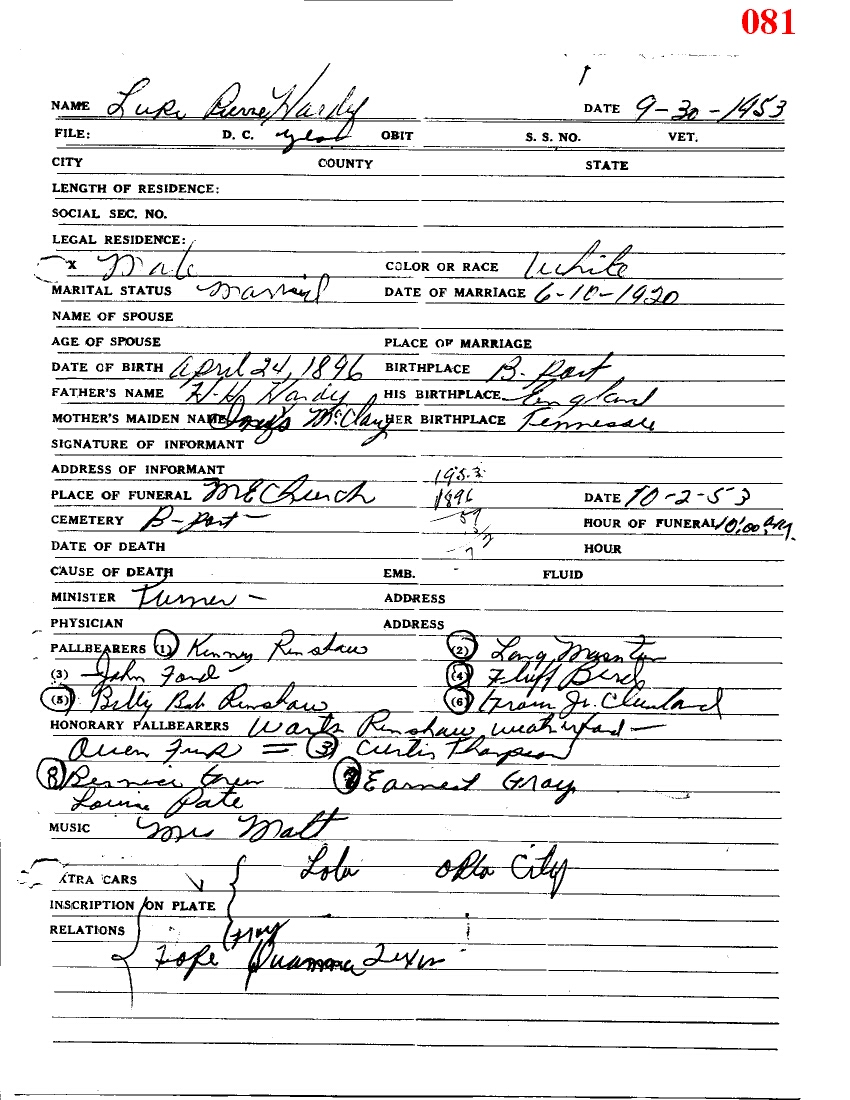 081
NAME Luke Pierre Hardy DATE 9-30-1953
FILE: D. C. yes OBIT S. S. NO. VET.
CITY COUNTY STATE
LENGTH OF RESIDENCE:
SOCIAL SEC. NO.
LEGAL RESIDENCE:
X Male COLOR OR RACE White
MARITAL STATUS Married DATE OF MARRIAGE 6-10-1920
NAME OF SPOUSE
AGE OF SPOUSE PLACE OF MARRIAGE
DATE OF BIRTH April 24, 1896 BIRTHPLACE B-port
FATHER'S NAME H. H. Hardy HIS BIRTHPLACE England
MOTHER'S MAIDEN NAME McClary HER BIRTHPLACE Tennessee
SIGNATURE OF INFORMANT
ADDRESS OF INFORMANT 1953
PLACE OF FUNERAL ME Church 1896 DATE 10-2-53
CEMETERY B-port - 57 HOUR OF FUNERAL 10:00 A.M.
DATE OF DEATH HOUR
CAUSE OF DEATH EMB. FLUID
MINISTER Turner - ADDRESS
PHYSICIAN ADDRESS
PALLBEARERS (1) Kenney Renshaw (2) Lang
(3) John Ford - (4)
(5) Billy Bob Renshaw (6) Jr. Cleveland
HONORARY PALLBEARERS Renshaw, weatherford -
Owen = (3) Curtis Thompson
(8) Bernice (7) Earnest Gray
Louise Pate
MUSIC Mrs Matt
XTRA CARS Lola Okla City
INSCRIPTION ON PLATE
RELATIONS Gray
Texas